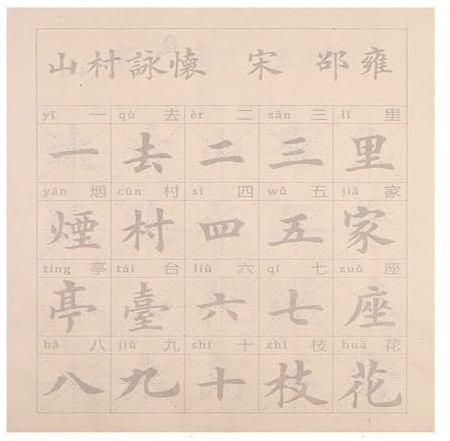 山村詠懷 宋 邵雍
yī 一 qù 去 èr 二 sān 三 lǐ 里
一去二三里
yān 烟 cūn 村 sì 四 wǔ 五 jiā 家
煙村四五家
tíng 亭 tái 台 liù 六 qī 七 zuò 座
亭臺六七座
bā 八 jiǔ 九 shí 十 zhī 枝 huā 花
八九十枝花